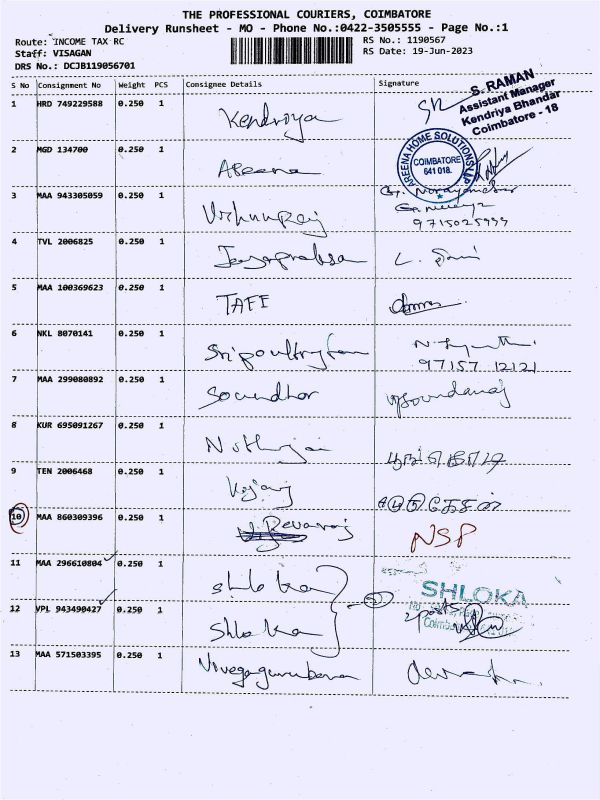 THE PROFESSIONAL COURIERS, COIMBATORE
Delivery Runsheet - MO - Phone No.:0422-3505555 - Page No.:1
Route: INCOME TAX-RC RS No.: 1190567
Staff: VISAGAN RS Date: 19-Jun-2023
DRS No.: DCJB119056701
S No Consignment No Weight PCS Consignee Details Signature
S. RAMAN
Assistant Manager
Kendriya Bhandar
Coimbatore - 18
1 HRD 749229588 0.250 1 Kendriya
2 MGD 134700 0.250 1 Areena
AREENA HOME SOLUTIONS LLP
COIMBATORE
641 018.
3 MAA 943305059 0.250 1
9715025999
4 TVL 2006825 0.250 1 Jayaprabha
5 MAA 100369623 0.250 1 TAFE
6 NKL 8070141 0.250 1
97157 12121
7 MAA 299080892 0.250 1 Soundhar
8 KUR 695091267 0.250 1
9 TEN 2006468 0.250 1
10 MAA 860309396 0.250 1 Devaraj NSP
11 MAA 296610804 0.250 1 Shloka
SHLOKA
12 VPL 943490427 0.250 1 Shloka
2 posts
13 MAA 571503395 0.250 1